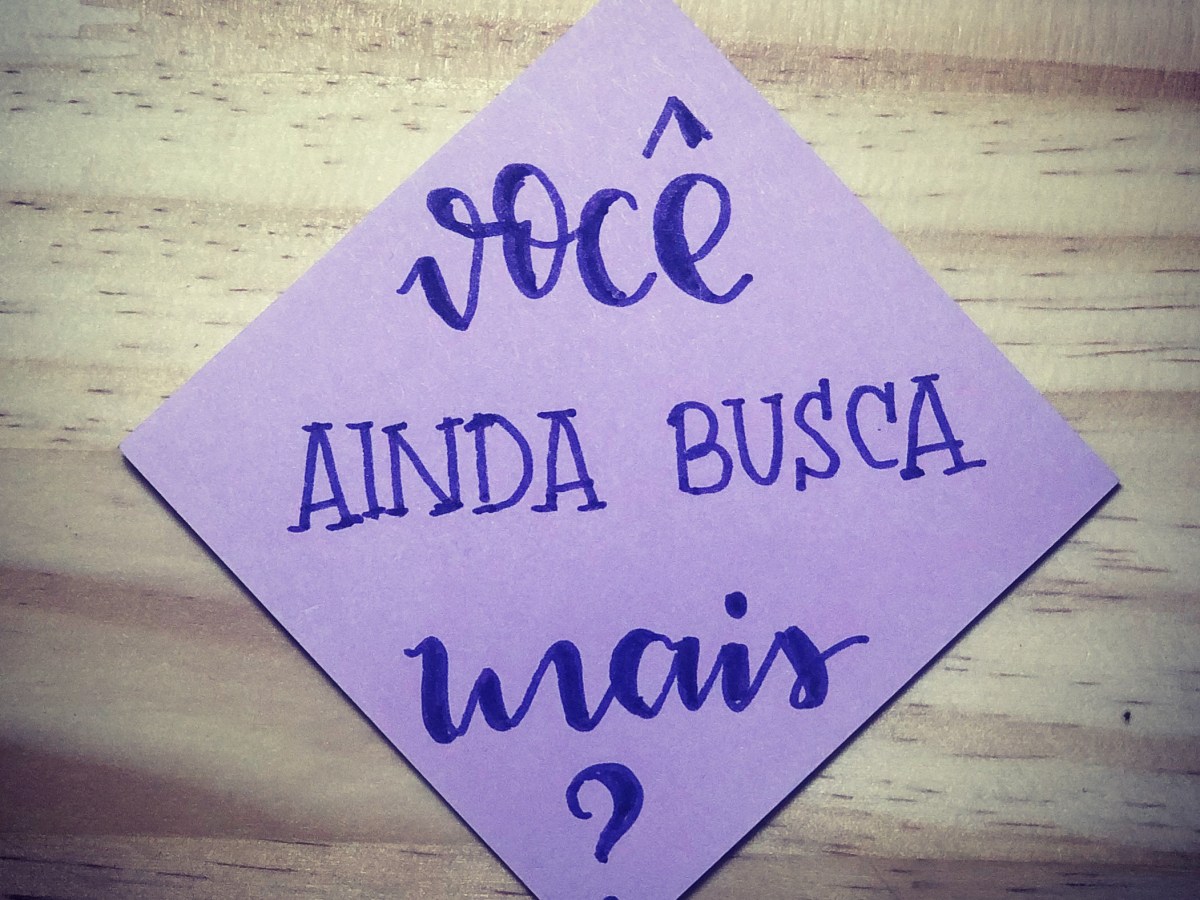 você
AINDA BUSCA
mais
?